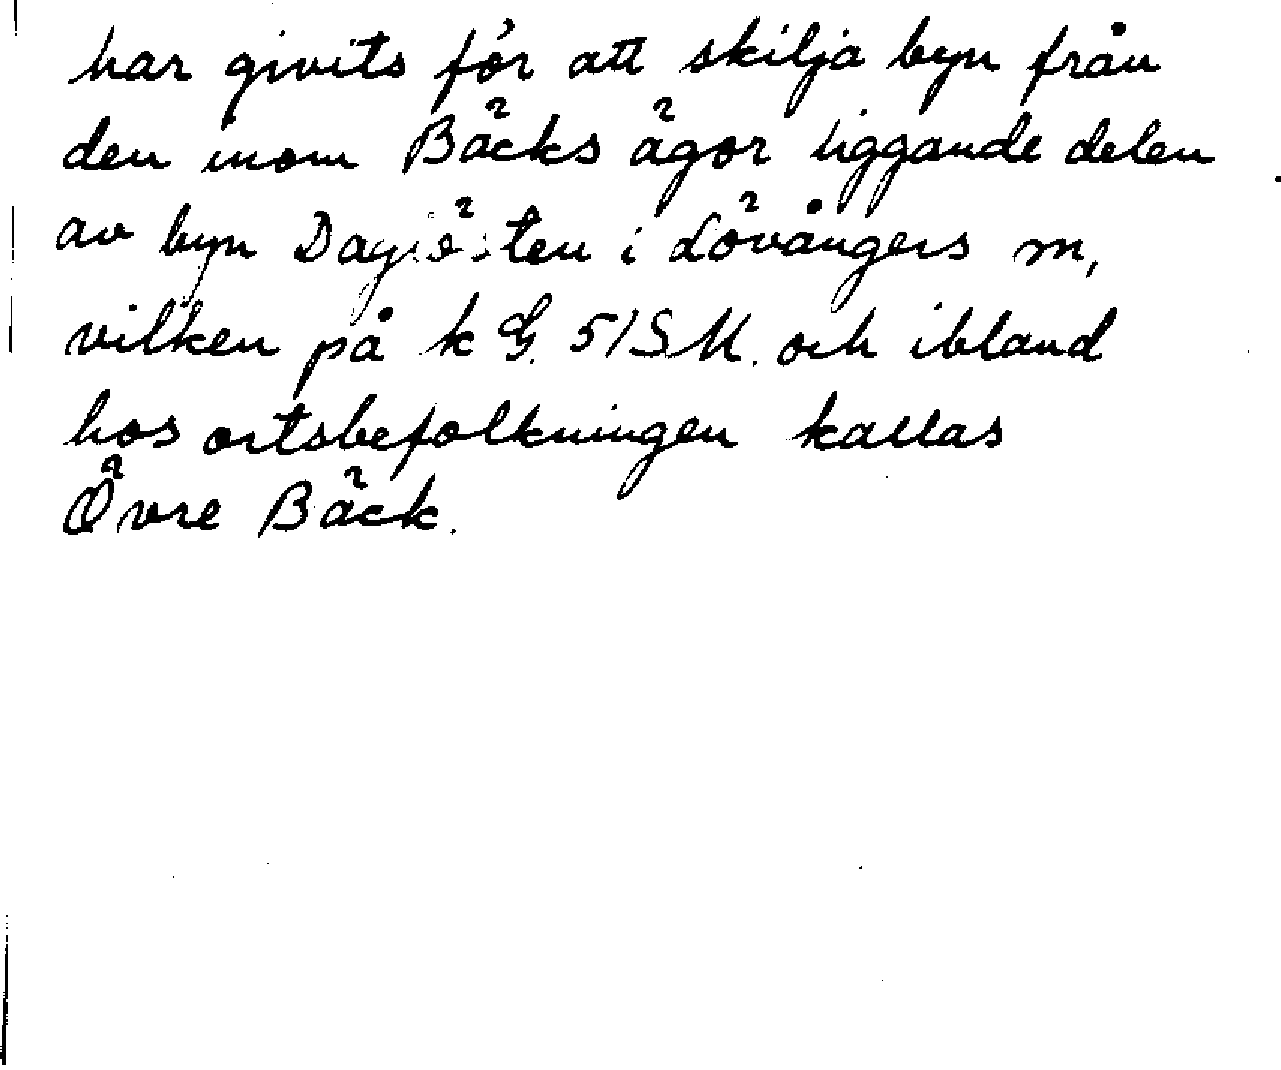 har givits för att skilja byn från
den inom Bäcks ägor liggande delen
av byn i Lövångers m,
vilken på k G. 51SM. och ibland
hos ortsbefolkningen kallas
Övre Bäck.